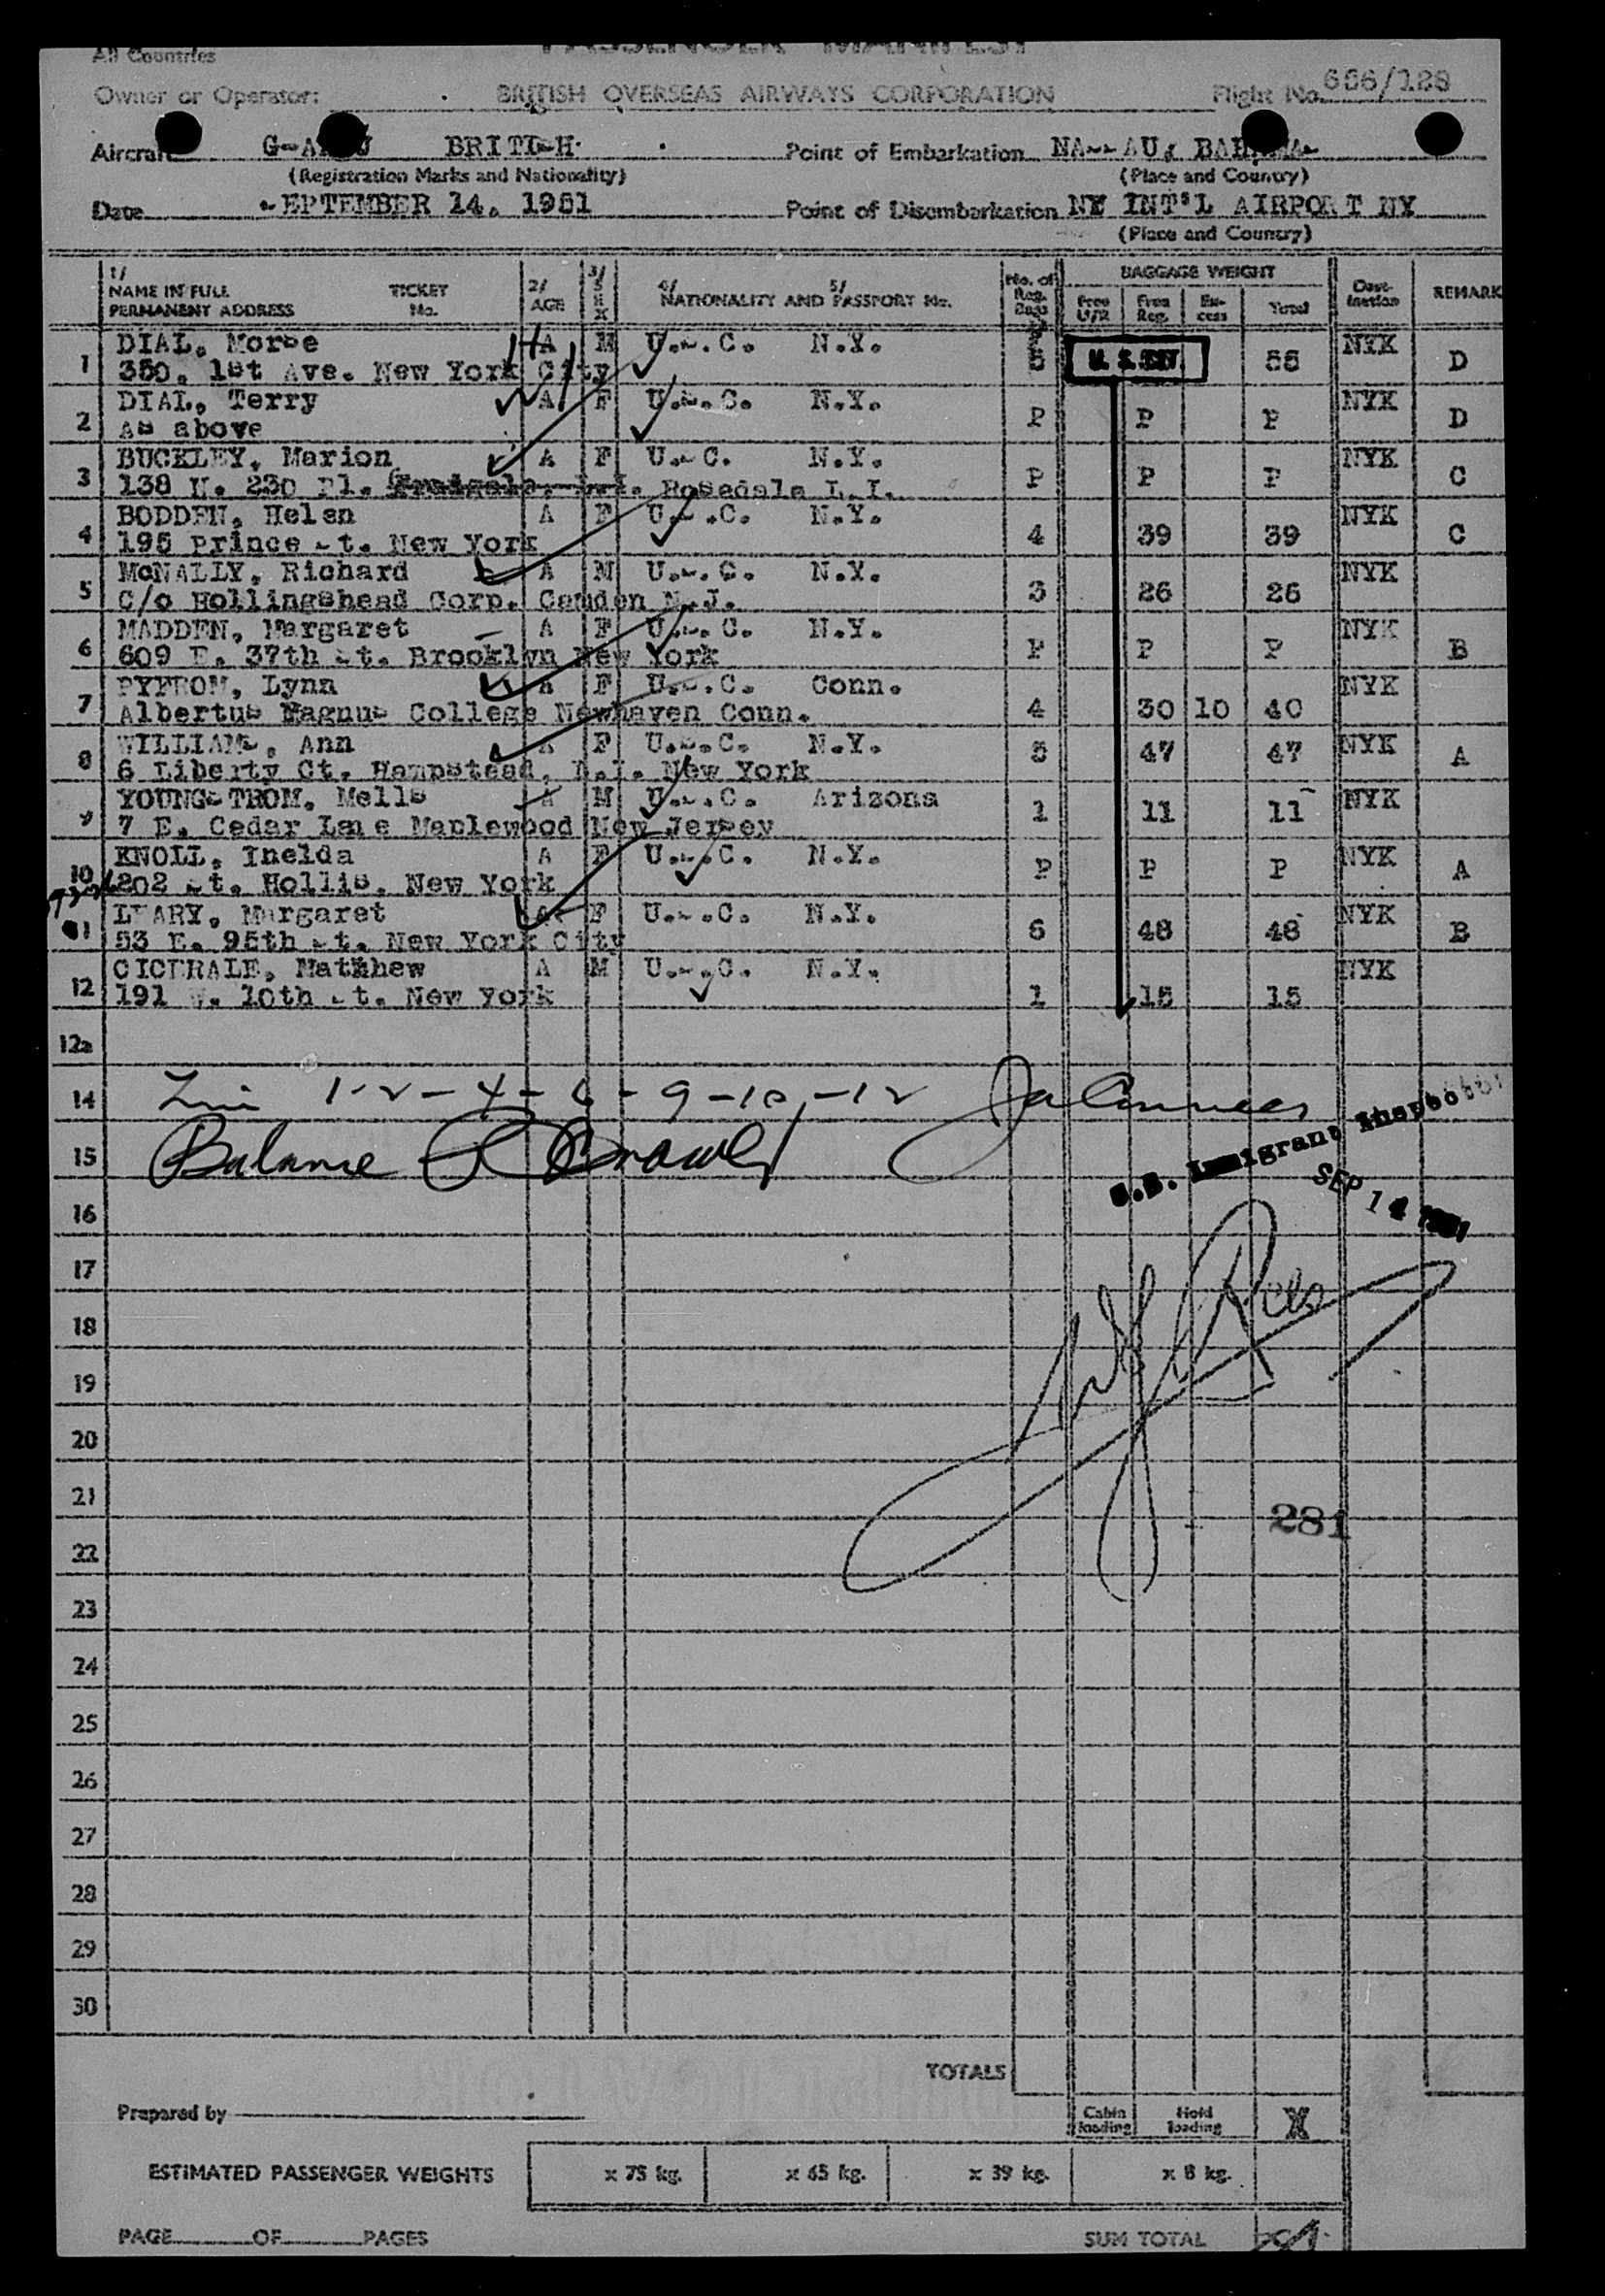 PASSENGER MANIFEST
All Countries
Owner or Operator: BRITISH OVERSEAS AIRWAYS CORPORATION Flight No. 656/128
Aircraft BRITISH Point of Embarkation NASSAU, BAHAMAS
(Registration Marks and Nationality) (Place and Country)
Date SEPTEMBER 14, 1951 Point of Disembarkation NY INT'L AIRPORT NY
(Place and Country)
1/ NAME IN FULL PERMANENT ADDRESS TICKET No. 2/ AGE 3/ SEX 4/ NATIONALITY AND 5/ PASSPORT No. No. of Reg. Bags BAGGAGE WEIGHT Free Reg. Ex-cess Total Dest-ination REMARK
1 DIAL, Morse A M U.S.C. N.Y. 5 55 NYK D
350. 1st Ave. New York City
2 DIAL, Terry A F U.S.C. N.Y. P P P NYK D
As above
3 BUCKLEY, Marion A F U.S.C. N.Y. P P P NYK C
138 N. 230 Pl. Rosedale L.I.
4 BODDEN, Helen A F U.S.C. N.Y. 4 39 39 NYK C
195 Prince St. New York
5 McNALLY, Richard A M U.S.C. N.Y. 3 26 26 NYK
C/o Hollingshead Corp. Camden N.J.
6 MADDEN, Margaret A F U.S.C. N.Y. P P P NYK B
609 E. 37th St. Brooklyn New York
7 PYFROM, Lynn A F U.S.C. Conn. 4 30 10 40 NYK
Albertus Magnus College Newhaven Conn.
8 WILLIAMS, Ann A F U.S.C. N.Y. 5 47 47 NYK A
6 Liberty Ct. Hempstead, L.I. New York
9 YOUNGSTROM, Mells A M U.S.C. Arizona 1 11 11 NYK
7 E. Cedar Lane Maplewood New Jersey
10 KNOLL, Inelda A F U.S.C. N.Y. P P P NYK A
202 St. Hollis, New York
11 LEARY, Margaret A F U.S.C. N.Y. 6 48 48 NYK B
53 E. 95th St. New York City
12 CICERALE, Matthew A M U.S.C. N.Y. 1 15 15 NYK
191 W. 10th St. New York
12a
14 1-2-4-6-9-10-12
15 Balance
U.S. Immigrant Inspector
SEP 14 1951
16
17
18
19
20
21
281
22
23
24
25
26
27
28
29
30
TOTALS
Prepared by Cabin loading Hold loading X
ESTIMATED PASSENGER WEIGHTS x 75 kg. x 65 kg. x 39 kg. x 8 kg.
PAGE OF PAGES SUM TOTAL